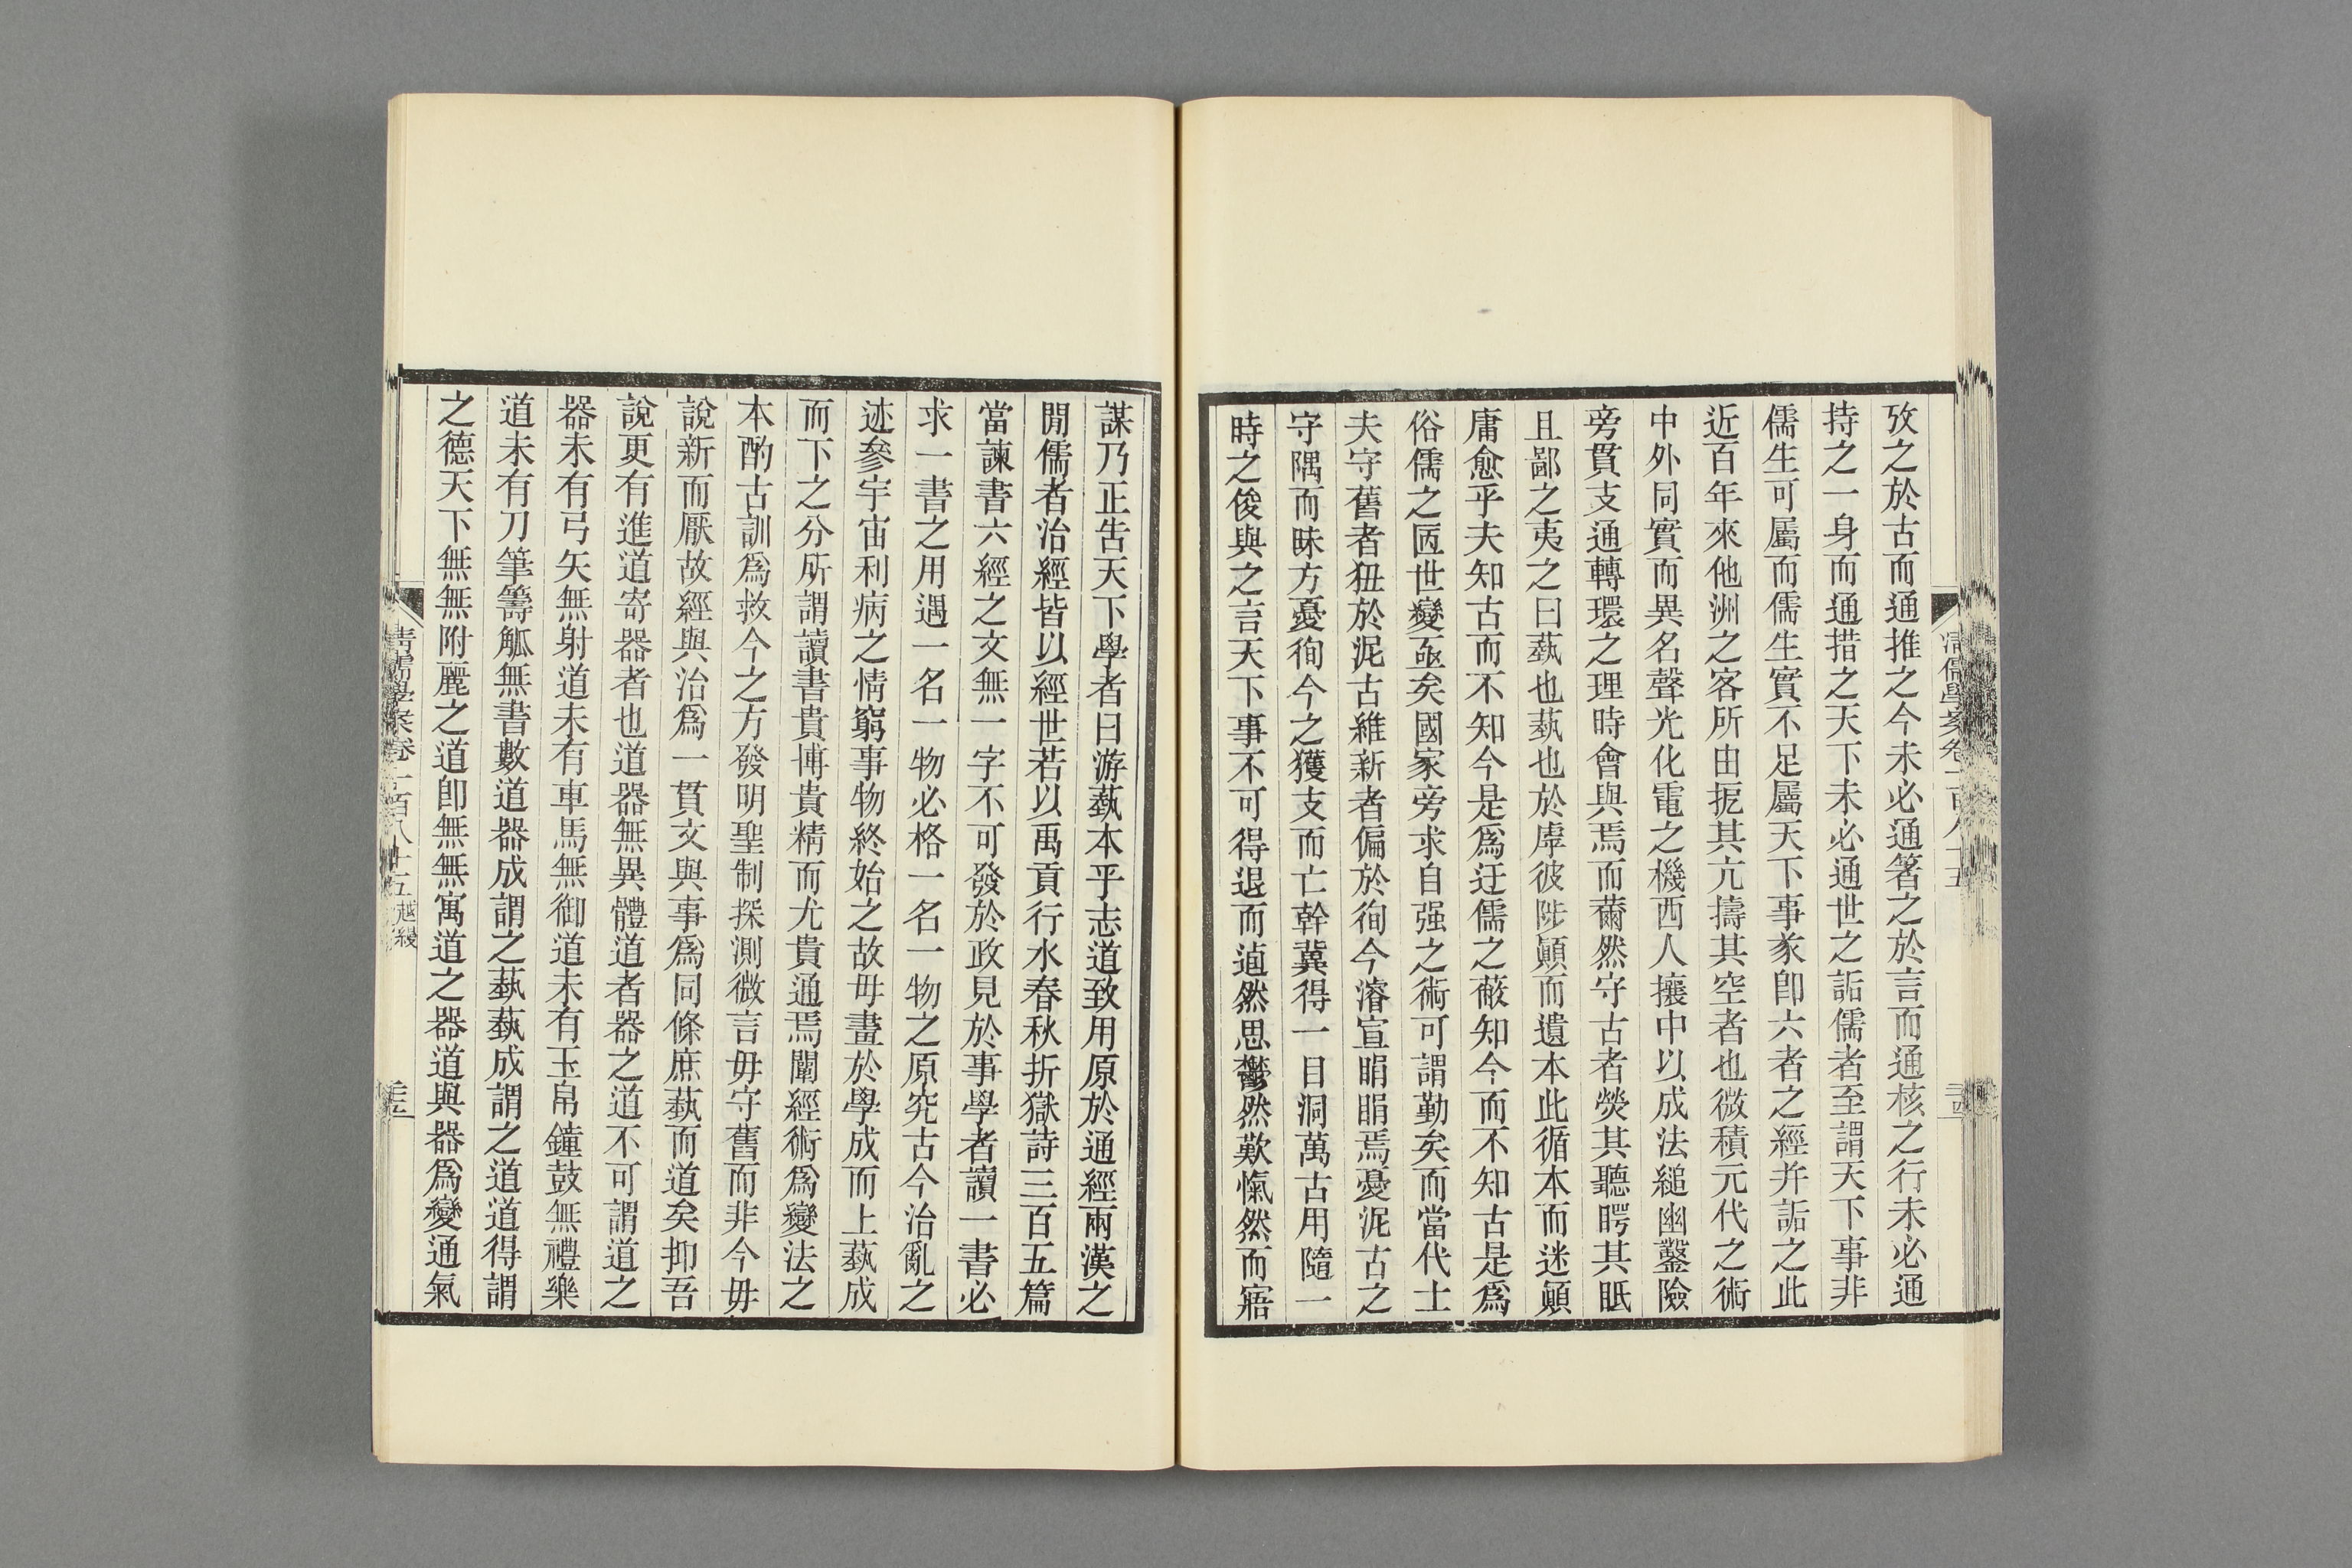 攷之於古而通推之今未必通箸之於言而通核之行未必通
持之一身而通措之天下未必通世之詬儒者至謂天下事非
儒生可屬而儒生實不足屬天下事豙卽六者之經并詬之此
近百年來他洲之客所由扼其亢擣其空者也微積元代之術
中外同實而異名聲光化電之機西人攘中以成法縋幽鑿險
旁貫支通轉環之理時會與焉而薾然守古者熒其聽瞤其眂
且鄙之夷之曰蓺也蓺也於虖彼陟顚而遺本此循本而迷顚
庸愈乎夫知古而不知今是爲迂儒之蔽知今而不知古是爲
俗儒之匧世變亟矣國家旁求自强之術可謂勤矣而當代士
夫守舊者狃於泥古維新者偏於徇今濬宣睊睊焉憂泥古之
守隅而昧方憂徇今之獲支而亡幹冀得一目洞萬古用隨一
時之俊與之言天下事不可得退而逌然思鬱然歎愾然而寤
謀乃正告天下學者曰游蓺本乎志道致用原於通經兩漢之
閒儒者治經皆以經世若以禹貢行水春秋折獄詩三百五篇
當諫書六經之文無一字不可發於政見於事學者讀一書必
求一書之用遇一名一物必格一名一物之原究古今治亂之
迹參宇宙利病之情窮事物終始之故毋畫於學成而上蓺成
而下之分所謂讀書貴博貴精而尤貴通焉闡經術爲變法之
本酌古訓爲救今之方發明聖制探測微言毋守舊而非今毋
說新而厭故經與治爲一貫文與事爲同條庶蓺而道矣抑吾
說更有進道寄器者也道器無異體道者器之道不可謂道之
器未有弓矢無射道未有車馬無御道未有玉帛鐘鼓無禮樂
道未有刀筆籌觚無書數道器成謂之蓺蓺成謂之道道得謂
之德天下無無附麗之道卽無無寓道之器道與器爲變通氣
清儒學案卷一百八十五 越縵